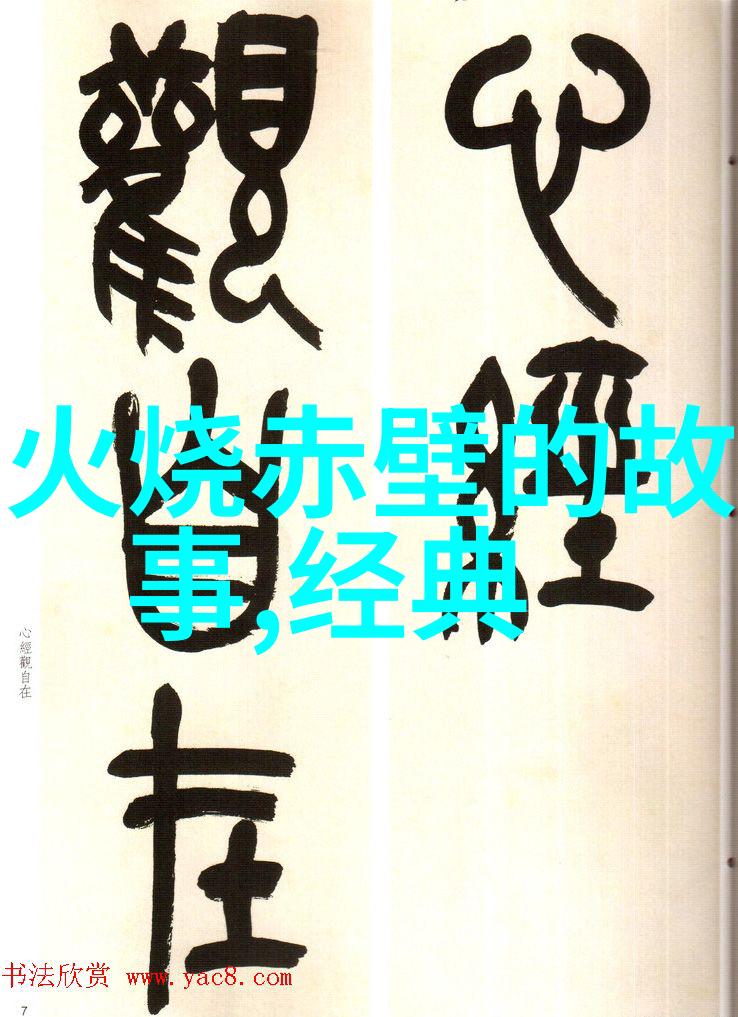 心經
觀自在
火烧赤壁的故
事,经典
心經觀自在
书法欣赏 www.yac8.com
7